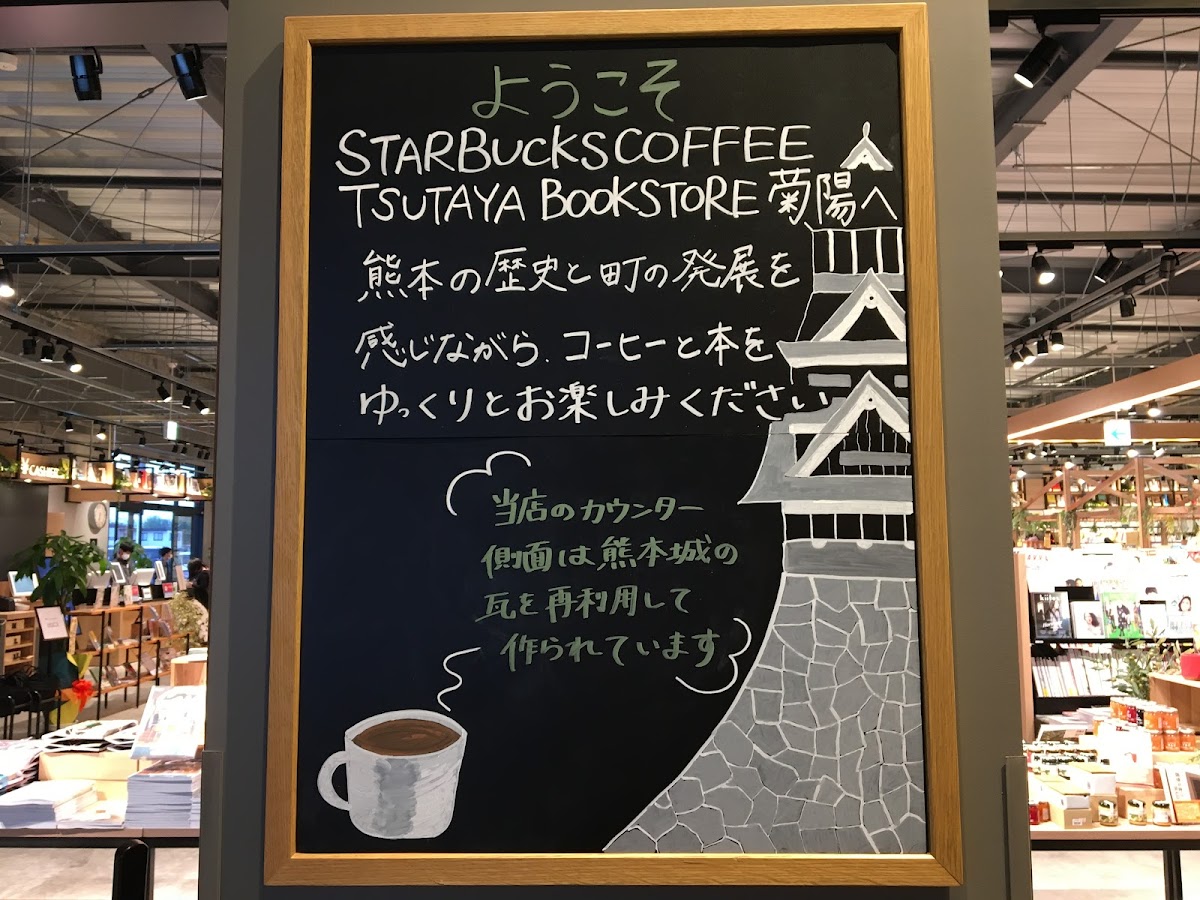 ようこそ
STARBUCKS COFFEE
TSUTAYA BOOKSTORE 菊陽へ
熊本の歴史と町の発展を
感じながら、コーヒーと本を
ゆっくりとお楽しみください
当店のカウンター
側面は熊本城の
瓦を再利用して
作られています
CASHIER